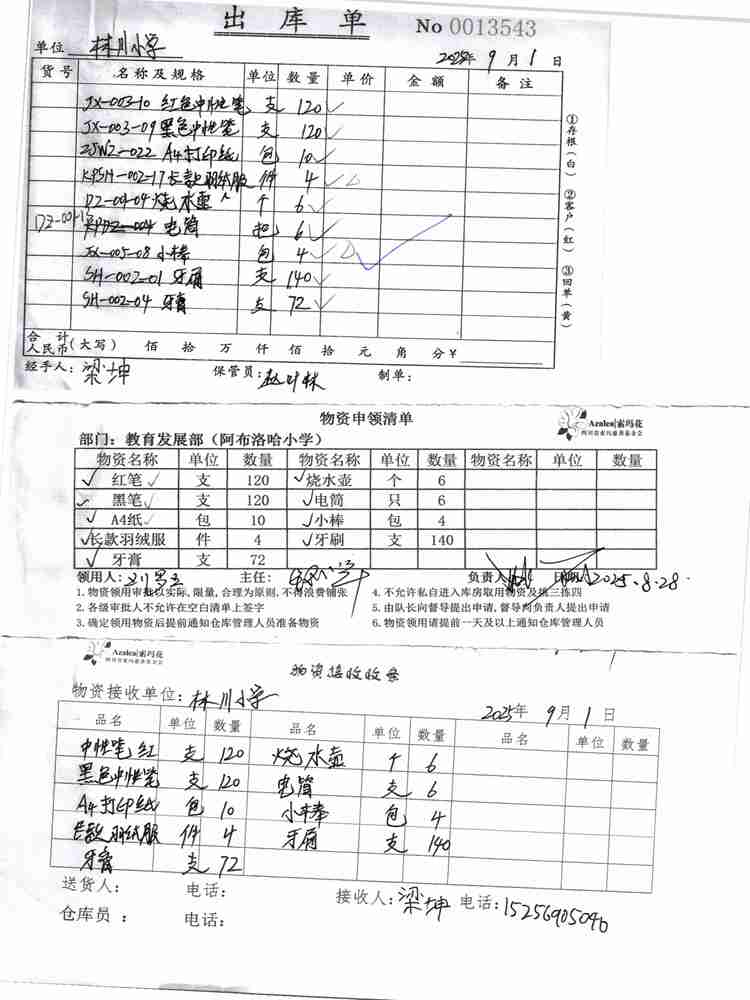 出库单 No 0013543
单位 林川小学 2025年 9月 1日
货号 名称及规格 单位 数量 单价 金额 备注
JX-003-10 红色中性笔 支 120
JX-003-09 黑色中性笔 支 120
ZJWZ-022 A4打印纸 包 10
KPSH-002-17 长款羽绒服 件 4
DZ-04-04 烧水壶 个 6
电筒 把 6
JX-005-08 小棒 包 4
SH-002-01 牙刷 支 140
SH-002-04 牙膏 支 72
合计
人民币(大写) 佰 拾 万 仟 佰 拾 元 角 分¥
经手人: 梁坤 保管员: 制单:
①存根(白)
②客户(红)
③回单(黄)
物资申领清单
Azalea|索玛花
部门: 教育发展部 (阿布洛哈小学)
物资名称 单位 数量 物资名称 单位 数量 物资名称 单位 数量
红笔 支 120 烧水壶 个 6
黑笔 支 120 电筒 只 6
A4纸 包 10 小棒 包 4
长款羽绒服 件 4 牙刷 支 140
牙膏 支 72
领用人: 主任: 负责人 2025.8.28.
1.物资领用审批以实际,限量,合理为原则,不得浪费铺张 4.不允许私自进入库房取用物资及挑三拣四
2.各级审批人不允许在空白清单上签字 5.由队长向督导提出申请,督导向负责人提出申请
3.确定领用物资后提前通知仓库管理人员准备物资 6.物资领用请提前一天及以上通知仓库管理人员
Azalea|索玛花
物资接收收条
物资接收单位: 林川小学 2025年 9月 1日
品名 单位 数量 品名 单位 数量 品名 单位 数量
中性笔 红 支 120 烧水壶 个 6
黑色中性笔 支 120 电筒 支 6
A4打印纸 包 10 小棒 包 4
长款羽绒服 件 4 牙刷 支 140
牙膏 支 72
送货人: 电话: 接收人: 梁坤 电话: 15256905046
仓库员: 电话: